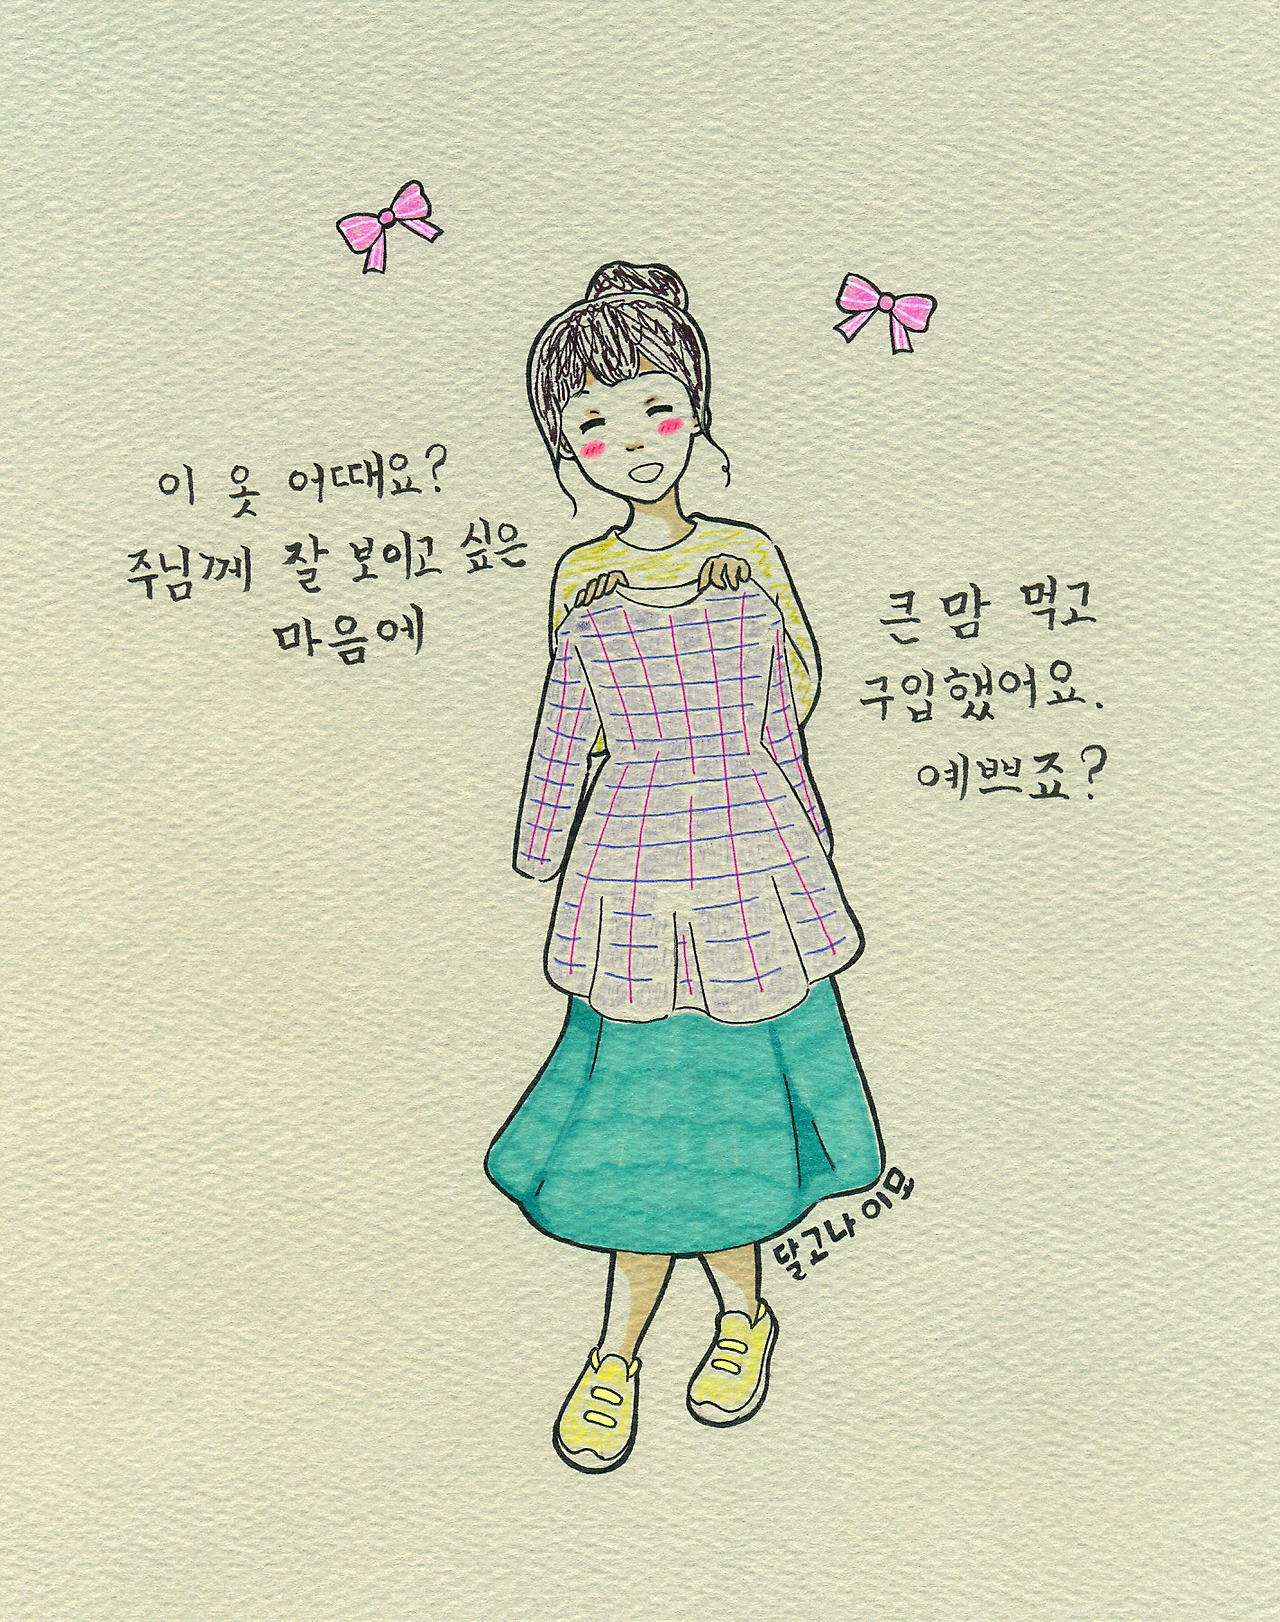 이 옷 어때요?
주님께 잘 보이고 싶은
마음에
큰 맘 먹고
구입했어요.
예쁘죠?
달고나 이모